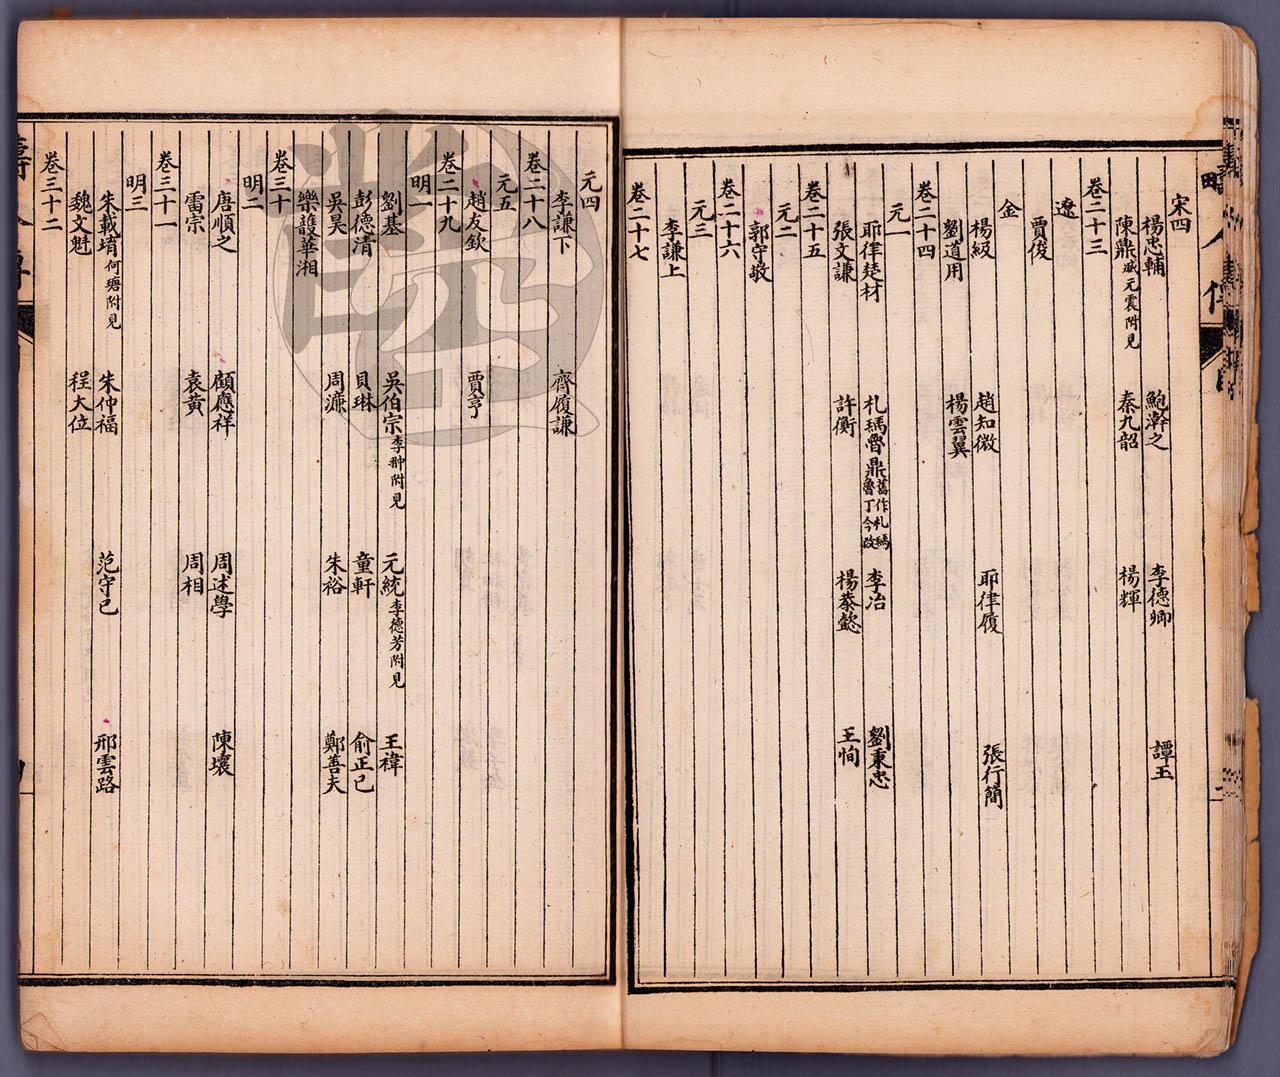 宋四
楊忠輔 鮑澣之 李德卿 譚玉
陳鼎臧元震附見 秦九韶 楊輝
卷二十三
遼
賈俊
金
楊級 趙知微 耶律履 張行簡
劉道用 楊雲翼
卷二十四
元一
耶律楚材 札瑪魯鼎舊作札瑪魯丁今改 李冶 劉秉忠
張文謙 許衡 楊恭懿 王恂
卷二十五
元二
郭守敬
卷二十六
元三
李謙上
卷二十七
元四
李謙下 齊履謙
卷二十八
元五
趙友欽 賈亨
卷二十九
明一
劉基 吳伯宗李翀附見 元統李德芳附見 王禕
彭德清 貝琳 童軒 俞正己
吳昊 周濂 朱裕 鄭善夫
樂頀華湘
卷三十
明二
唐順之 顧應祥 周述學 陳壤
雷宗 袁黃 周相
卷三十一
明三
朱載堉何瑭附見 朱仲福 范守己 邢雲路
魏文魁 程大位
卷三十二